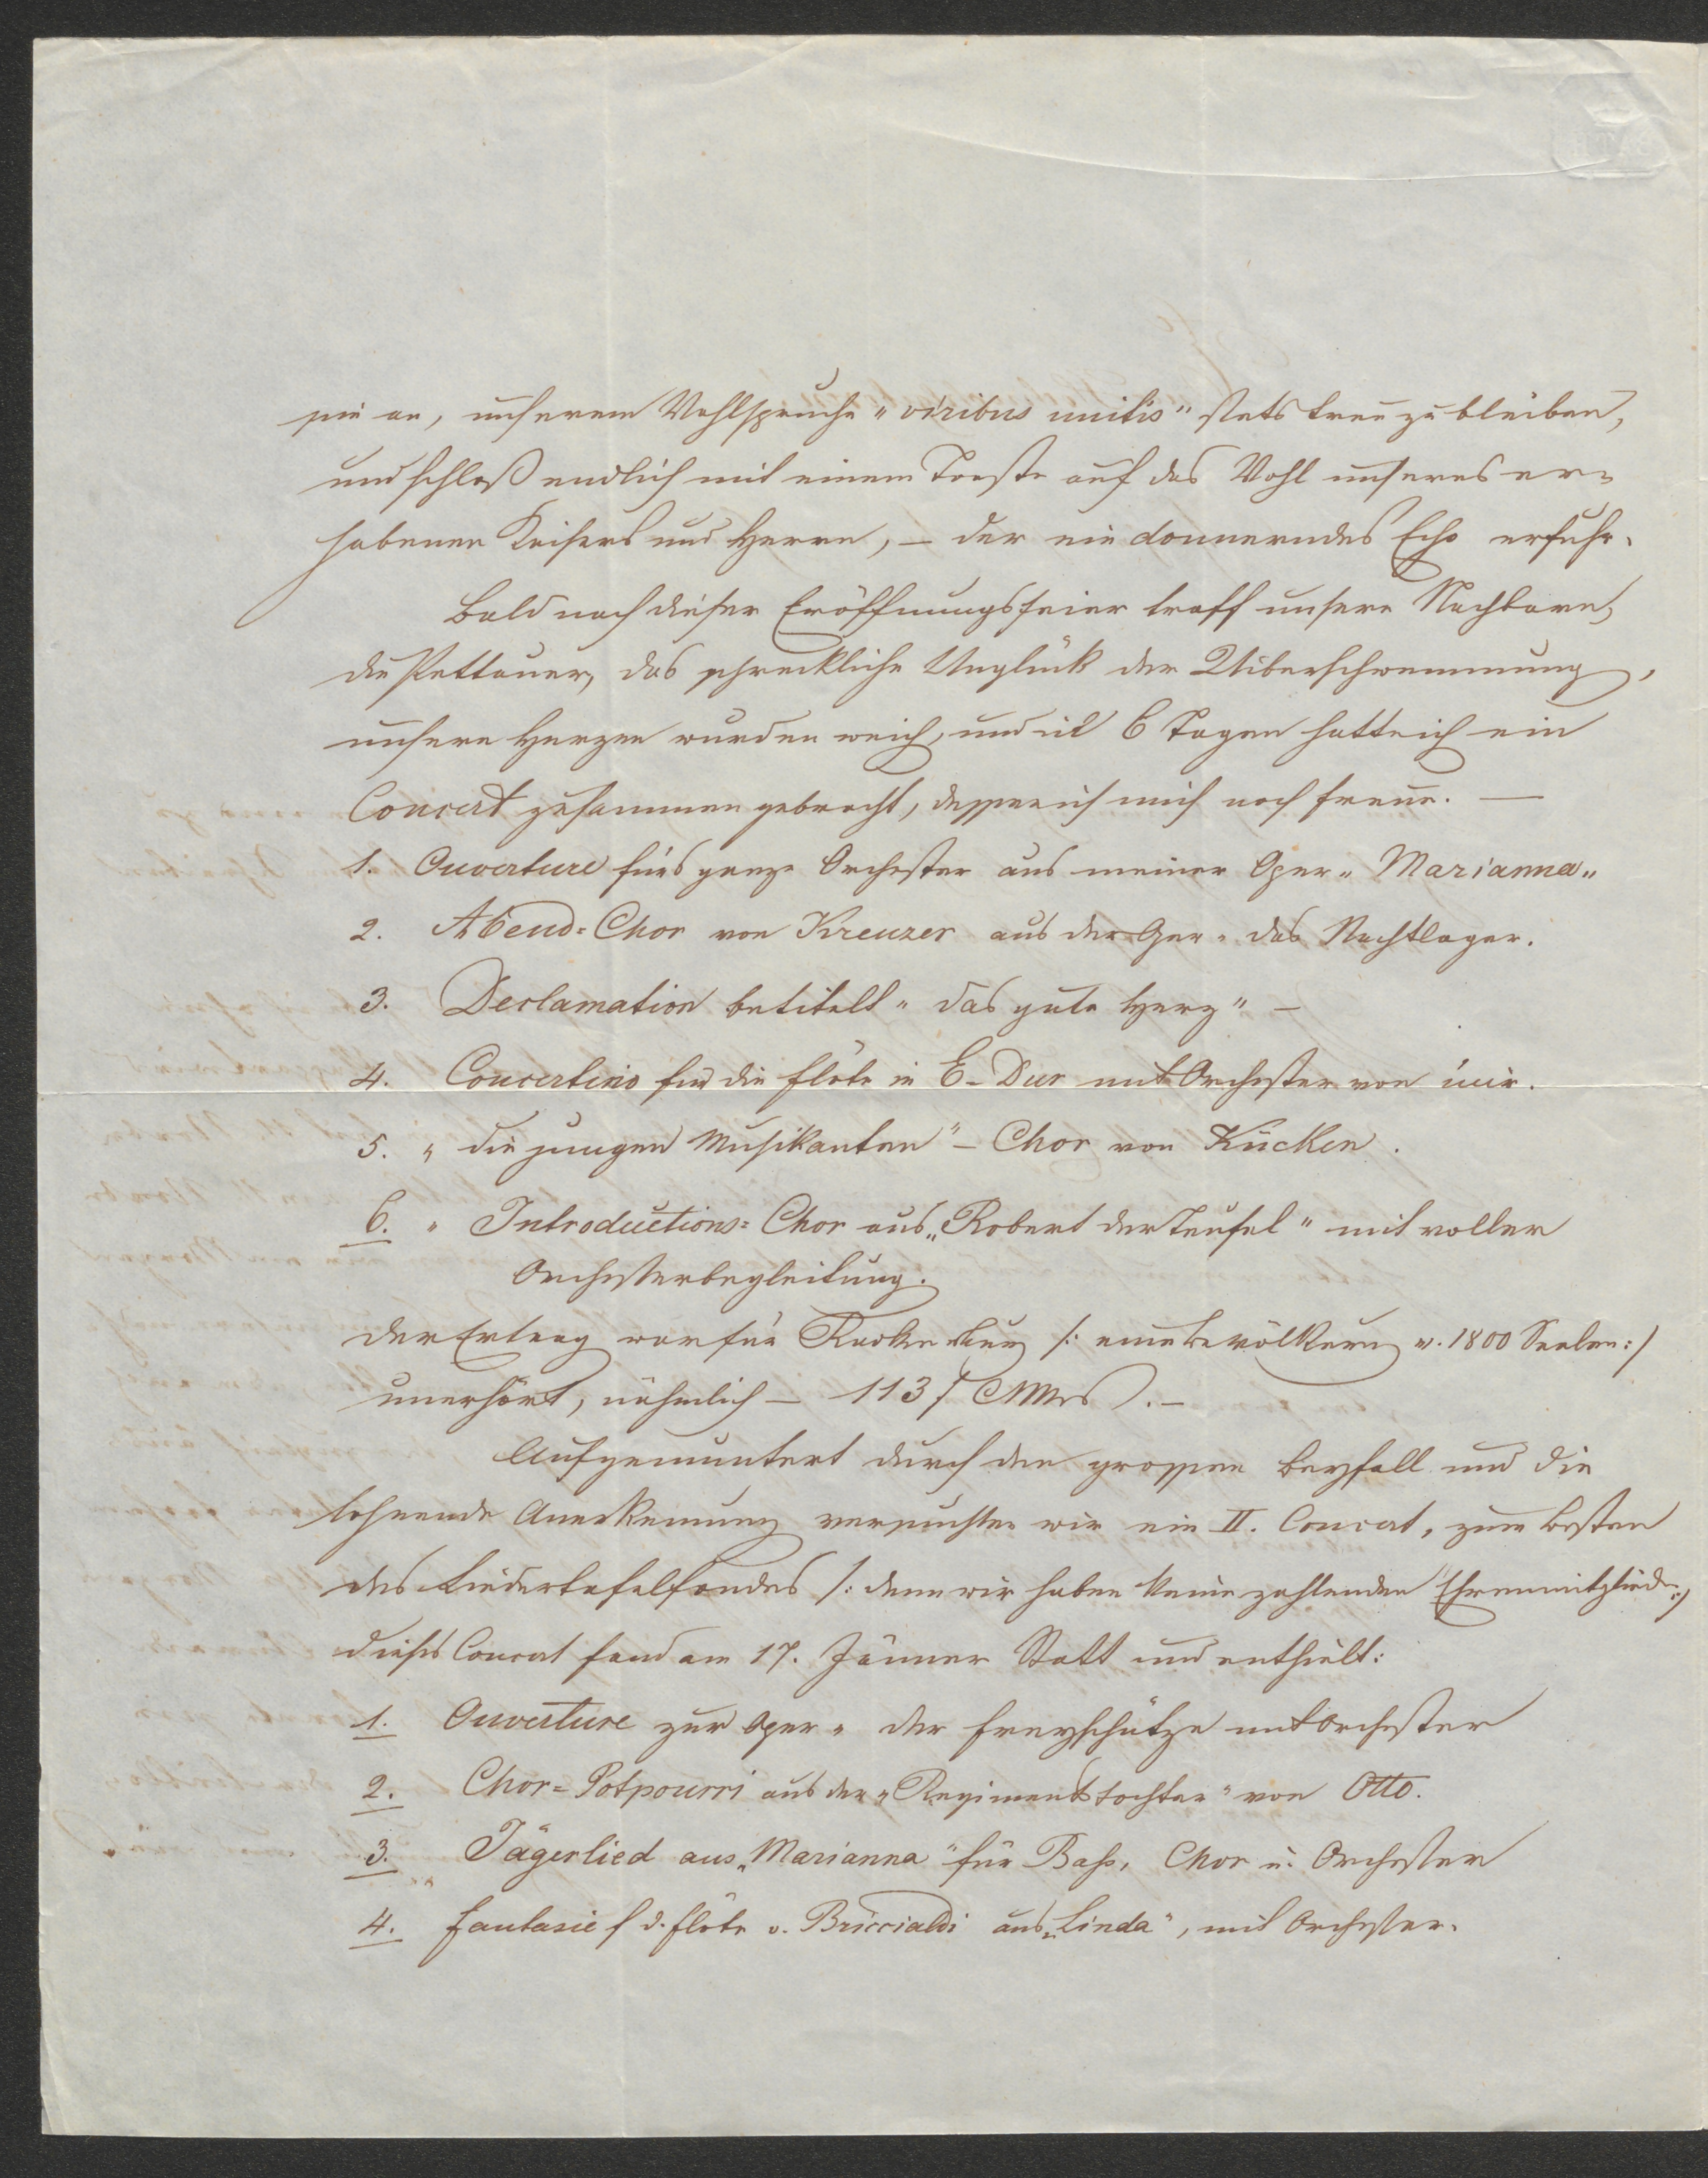 sie an, unserem Wahlspruche „viribus unitis" stets treu zu bleiben,
und schloß endlich mit einem Toaste auf das Wohl unseres er=
habenen Kaisers und Herrn, – der ein donnerndes Echo erfuhr.
Bald nach dieser Eröffnungsfeier traff unsere Nachbarn,
die Pettauer, das schreckliche Unglück der Uiberschwemmung,
unsere Herzen wurden weich, und in 6 Tagen hatte ich ein
Concert zusammen gebracht, dessen ich mich noch freue. —
1. Ouverture für's ganze Orchester aus meiner Oper „Marianna"
2. Abend=Chor von Kreuzer aus der Oper „das Nachtlager.
3. Declamation betitelt „das gute Herz" –
4. Concertino für die Flöte in E-Dur mit Orchester von mir.
5. „die jungen Musikanten" – Chor von Kücken.
6. „Introductions=Chor aus „Robert der Teufel" mit voller
Orchesterbegleitung.
Der Ertrag war für Radkersburg /: eine Bevölkerung v. 1800 Seelen :/
unerhört, nähmlich – 113 f CMze. –
Aufgemuntert durch den grossen Beyfall und die
lohnende Anerkennung versuchten wir ein II. Concert, zum Besten
des Liedertafelfondes /: denn wir haben keine zahlenden Ehrenmitglieder :/
dieses Concert fand am 17. Jänner Statt und enthielt:
1. Ouverture zur Oper „der Freyschütze mit Orchester
2. Chor=Potpourri aus der „Regimentstochter" von Otto.
3. Jägerlied aus „Marianna" für Bass, Chor u. Orchester
4. Fantasie f d. Flöte v. Briccialdi aus „Linda", mit Orchester.